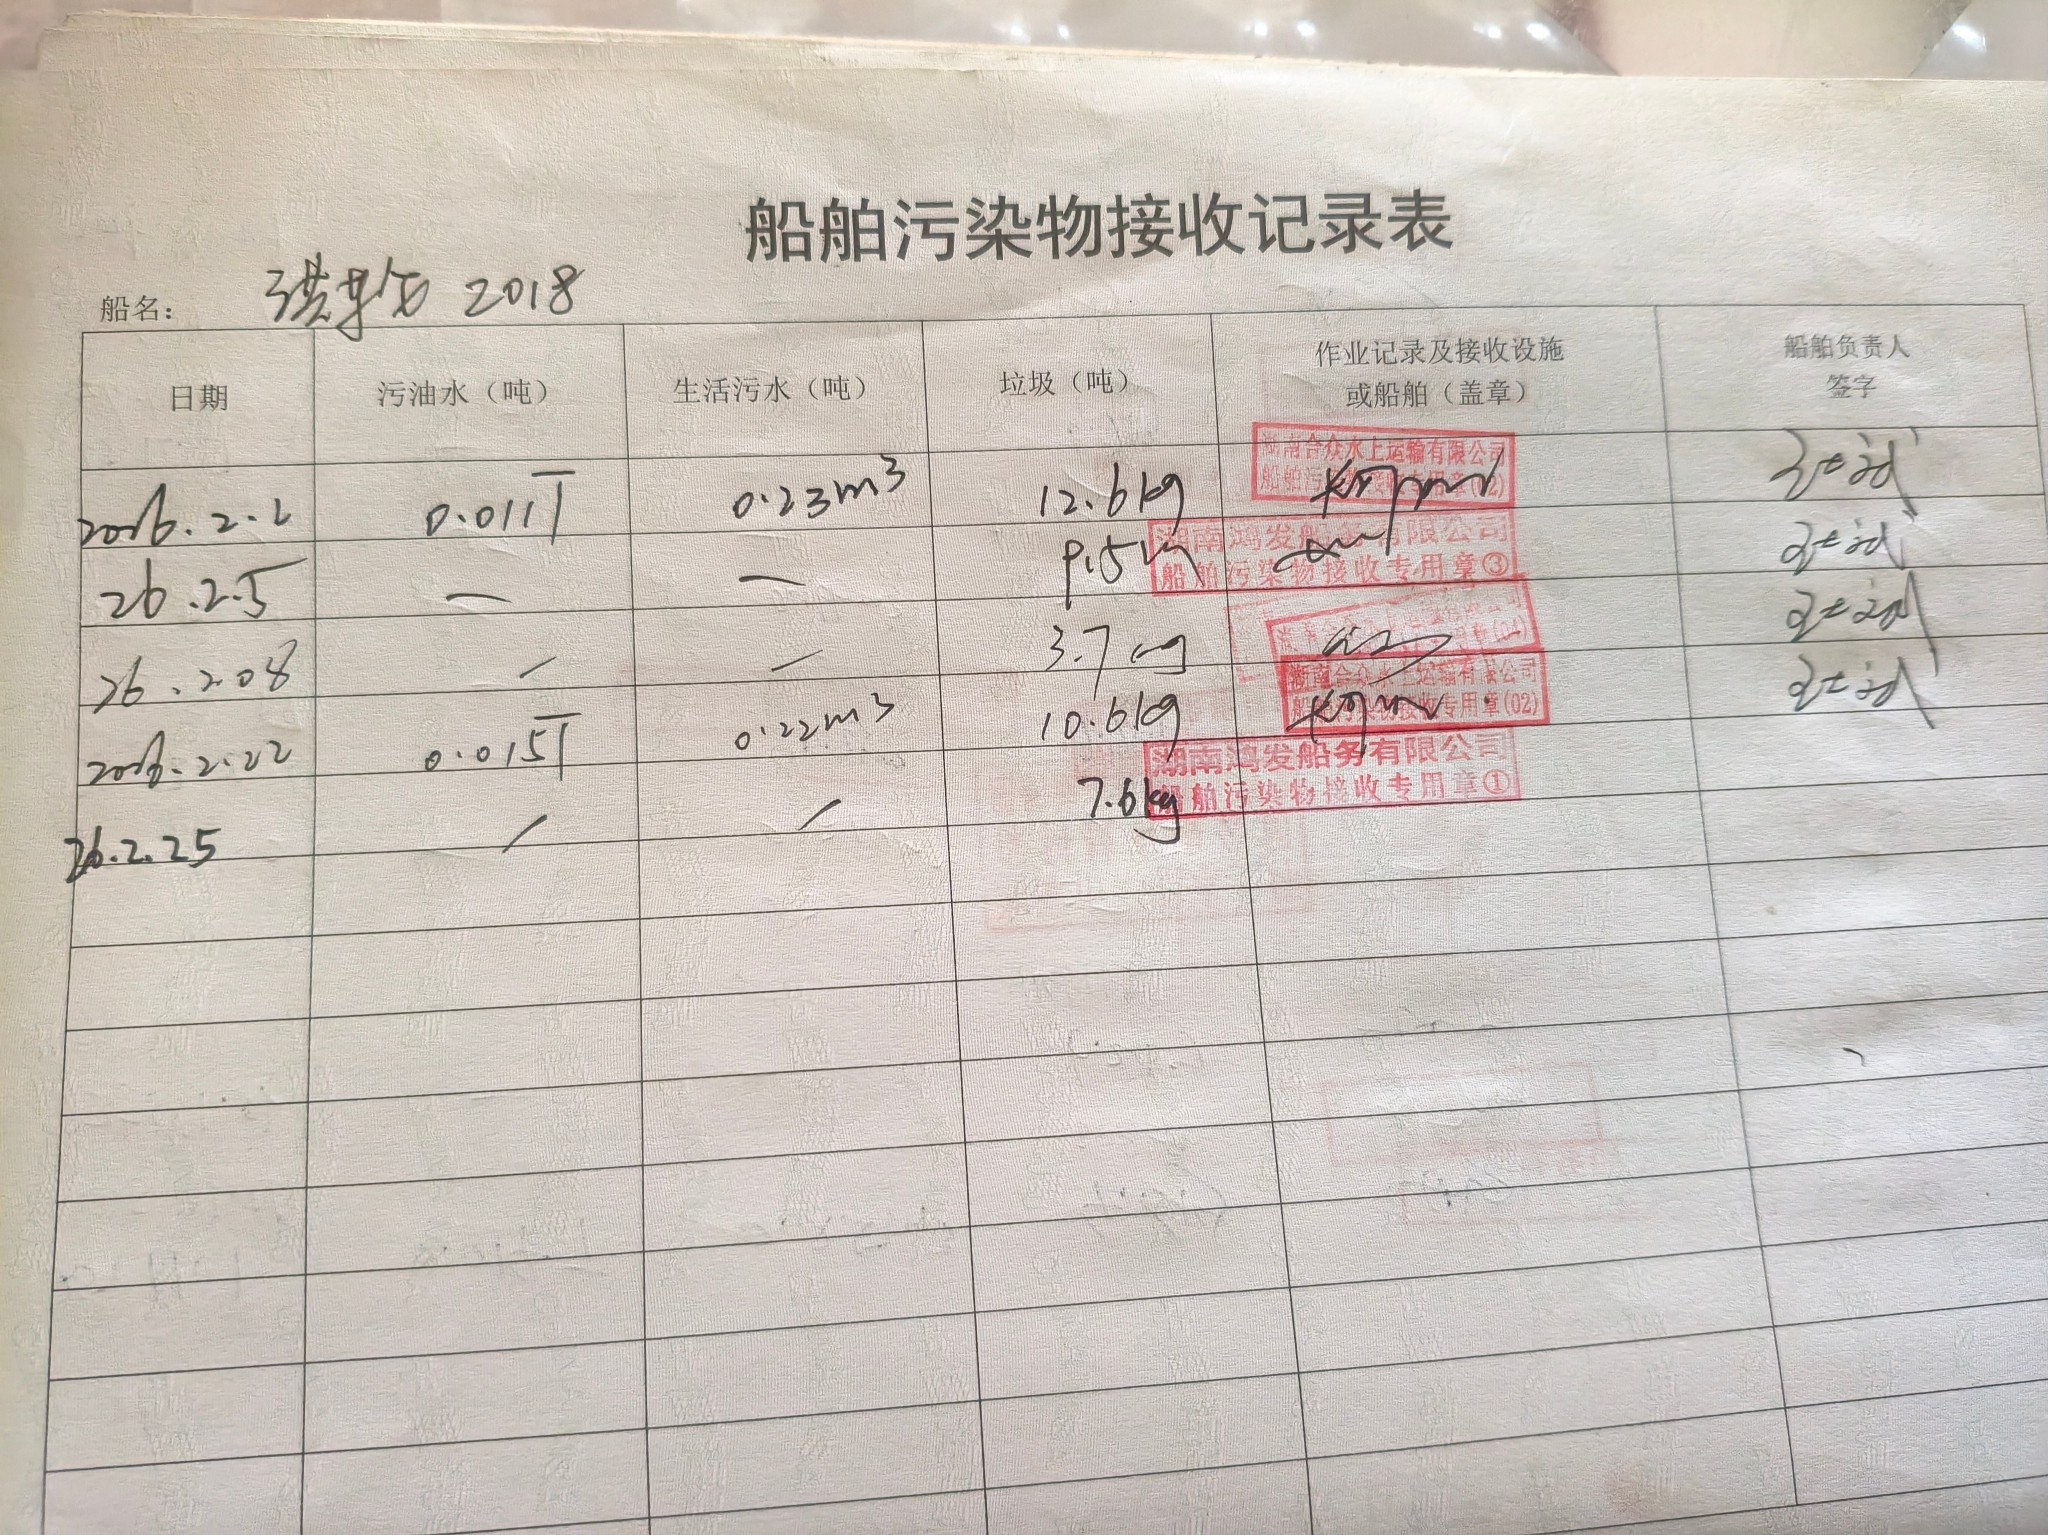 船舶污染物接收记录表
船名： 2018
日期 污油水（吨） 生活污水（吨） 垃圾（吨） 作业记录及接收设施或船舶（盖章） 船舶负责人签字
2026.2.2 0.011T 0.23m³ 12.6kg 湖南合众水上运输有限公司
26.2.5 — — 9.5 湖南鸿发船务有限公司 船舶污染物接收专用章③
26.2.08 / / 3.7
2026.2.22 0.015T 0.22m³ 10.6kg 湖南合众水上运输有限公司 船舶污染物接收专用章(02)
26.2.25 / / 7.6kg 湖南鸿发船务有限公司 船舶污染物接收专用章①